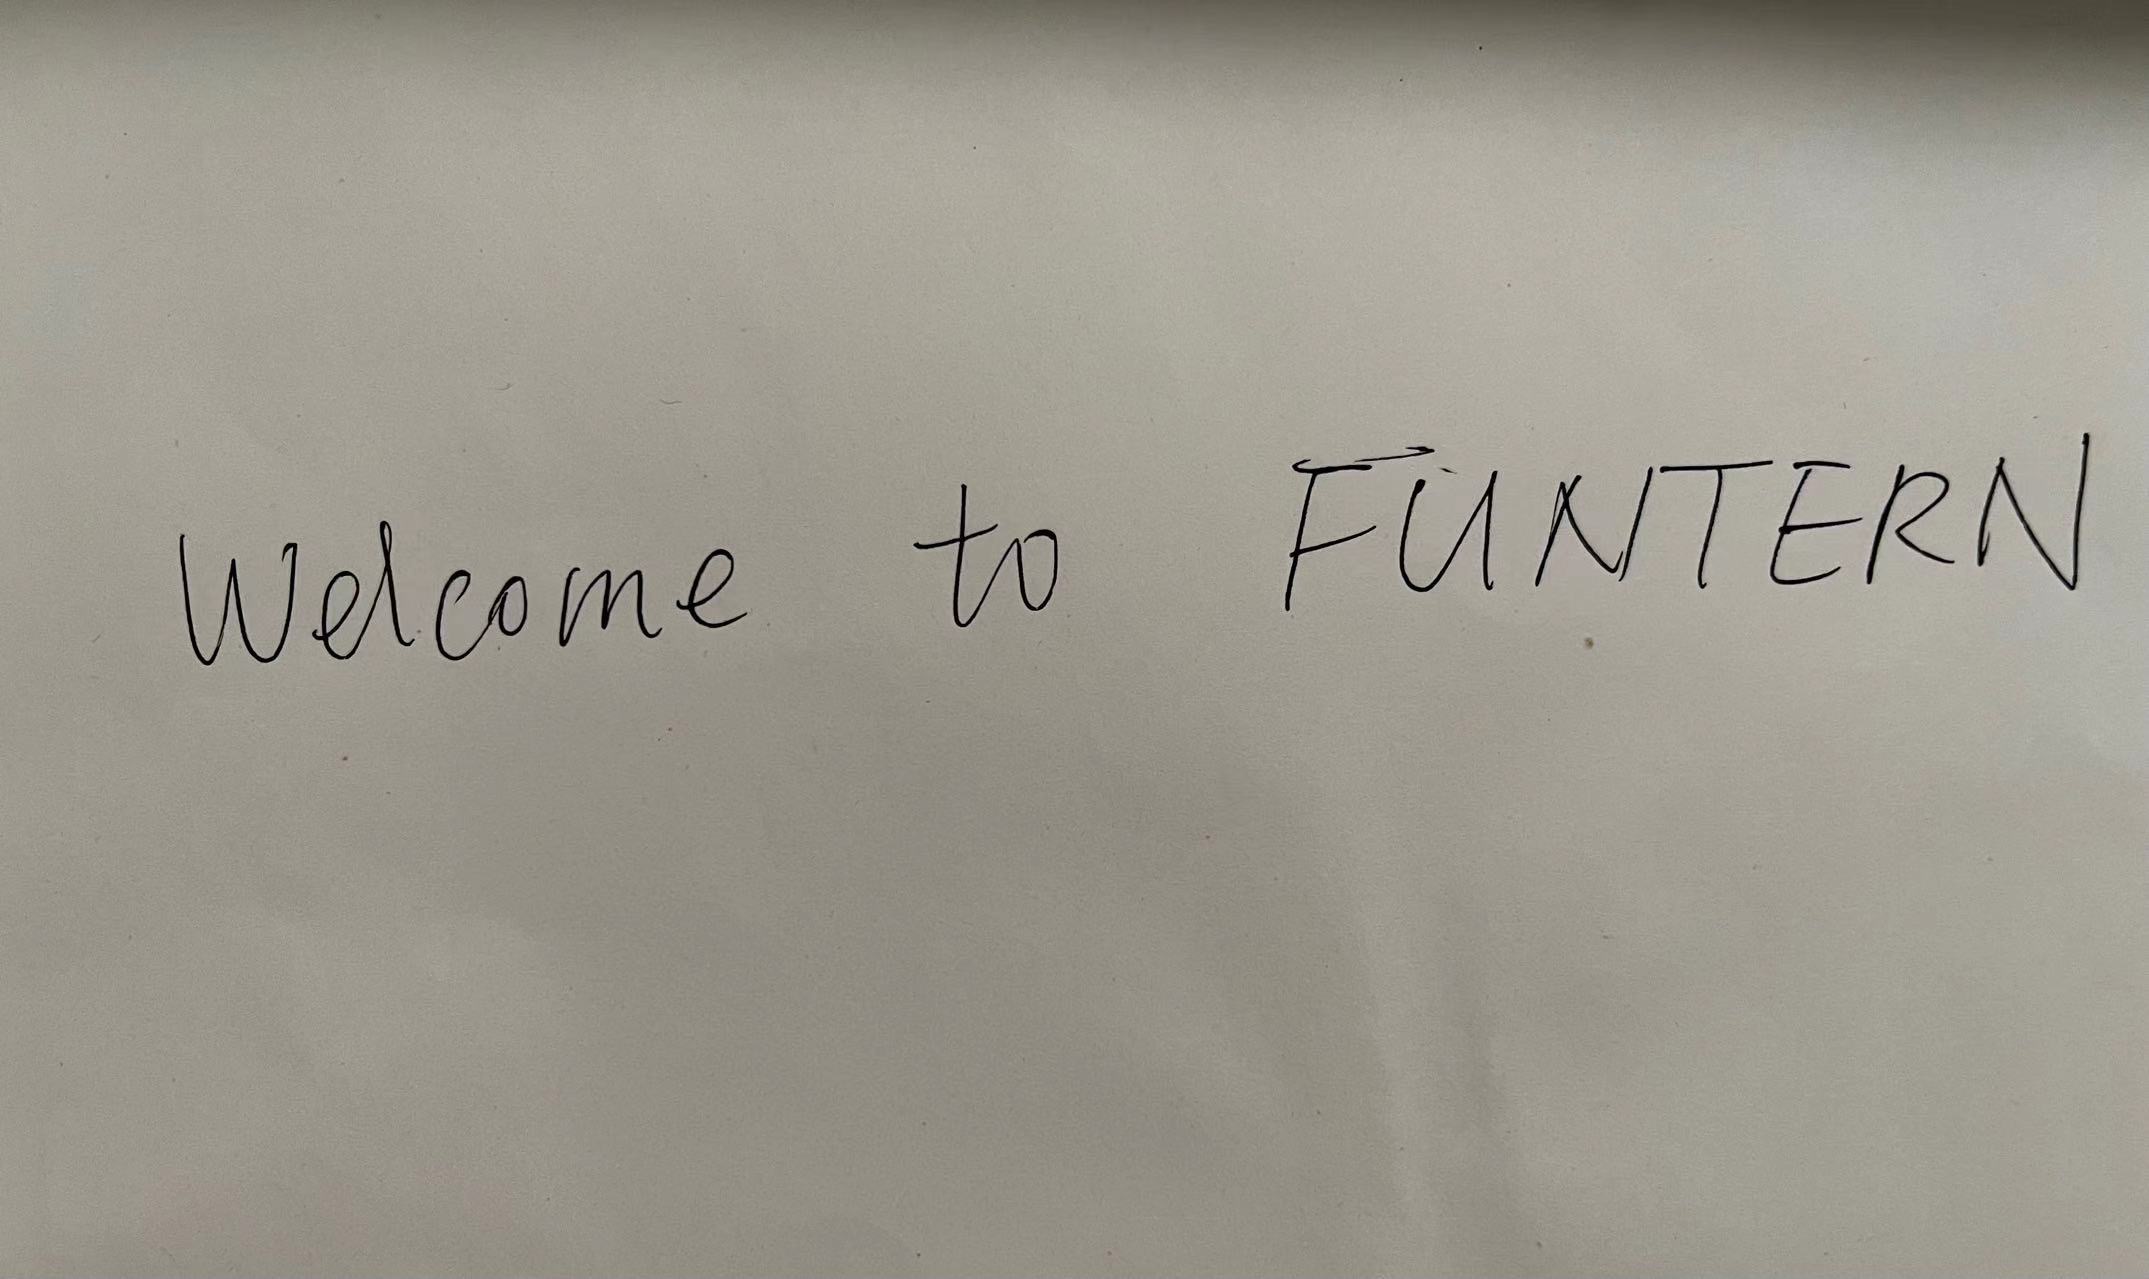 Welcome to FUNTERN